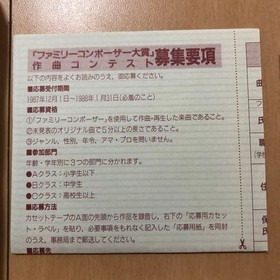 「ファミリーコンポーザー大賞」
作曲コンテスト 募集要項
以下の内容をよくお読みのうえ、ご応募ください。
■応募受付期間
1987年12月1日～1988年1月31日(必着のこと)
■応募資格
①「ファミリーコンポーザー」を使用して作曲・再生した楽曲であること。
②未発表のオリジナル曲で5分以上の長さであること。
③ジャンル、性別、年令、アマ・プロを問いません。
■参加部門
年齢・学年別に3つの部門に分かれます。
●Aクラス：小学生以下
●Bクラス：中学生
●Cクラス：高校生以上
■応募方法
カセットテープのA面の先頭から作品を録音し、右下の「応募用カセ
ット・ラベル」を貼り、必要事項をもれなく記入した「応募用紙」を同
封のうえ、事務局まで郵送してください。
■応募先
曲
氏
職
(学校
住
保
氏